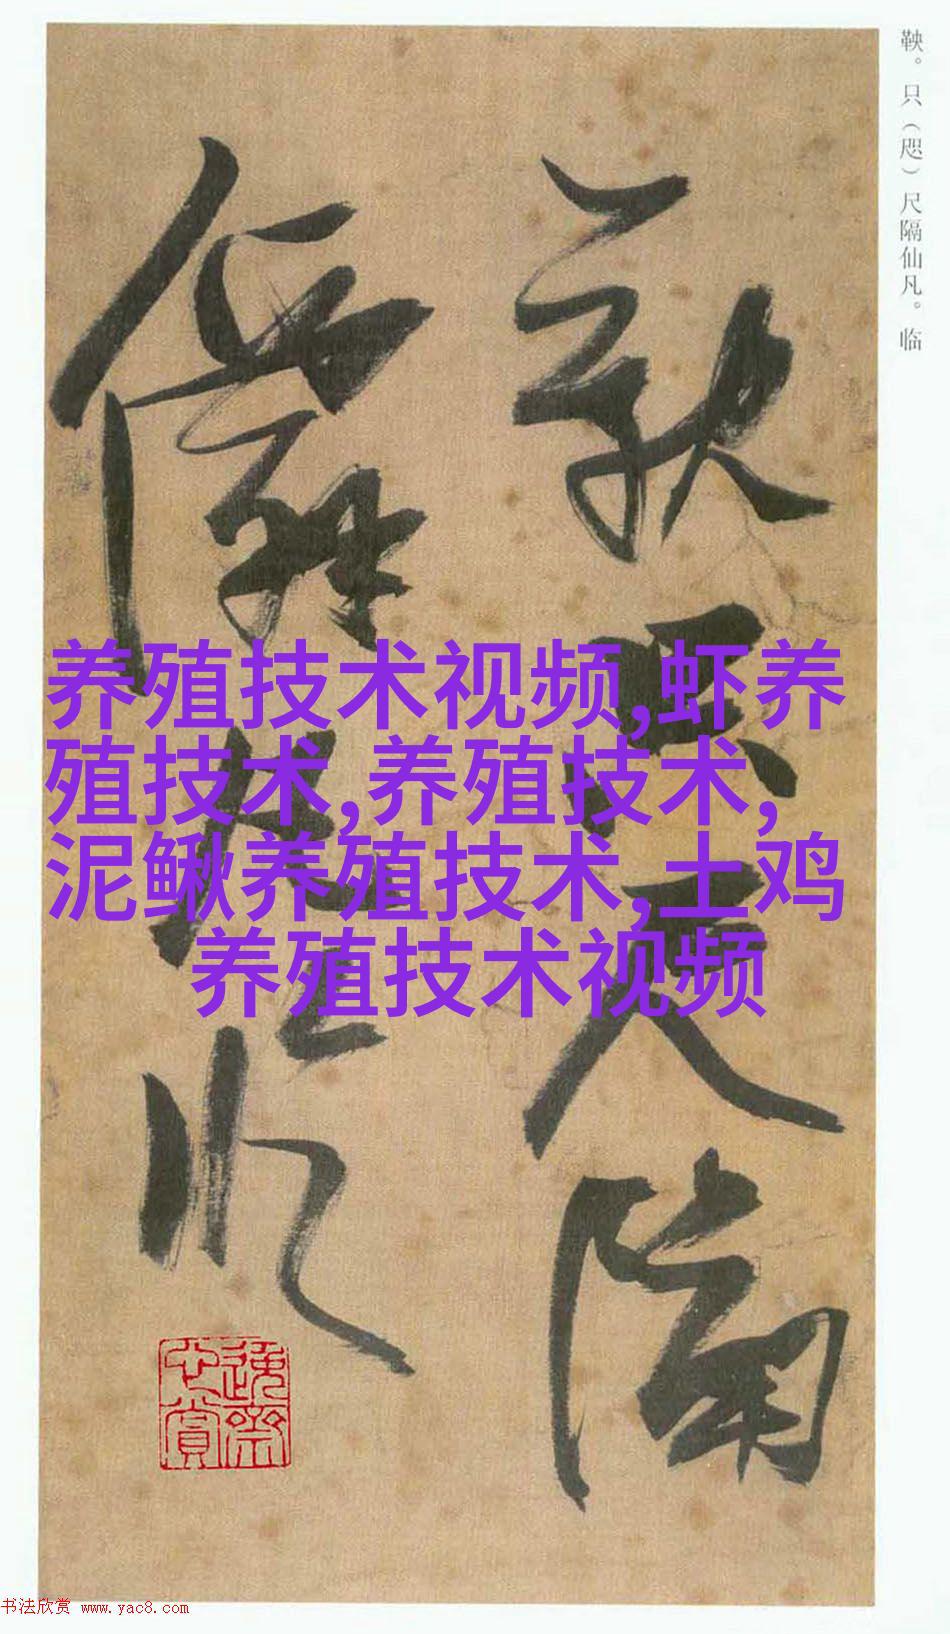 鞅。只（咫）尺隔仙凡。临
鞅只尺隔
僊凡临
养殖技术视频,虾养
殖技术,养殖技术,
泥鳅养殖技术,土鸡
养殖技术视频
书法欣赏 www.yac8.com